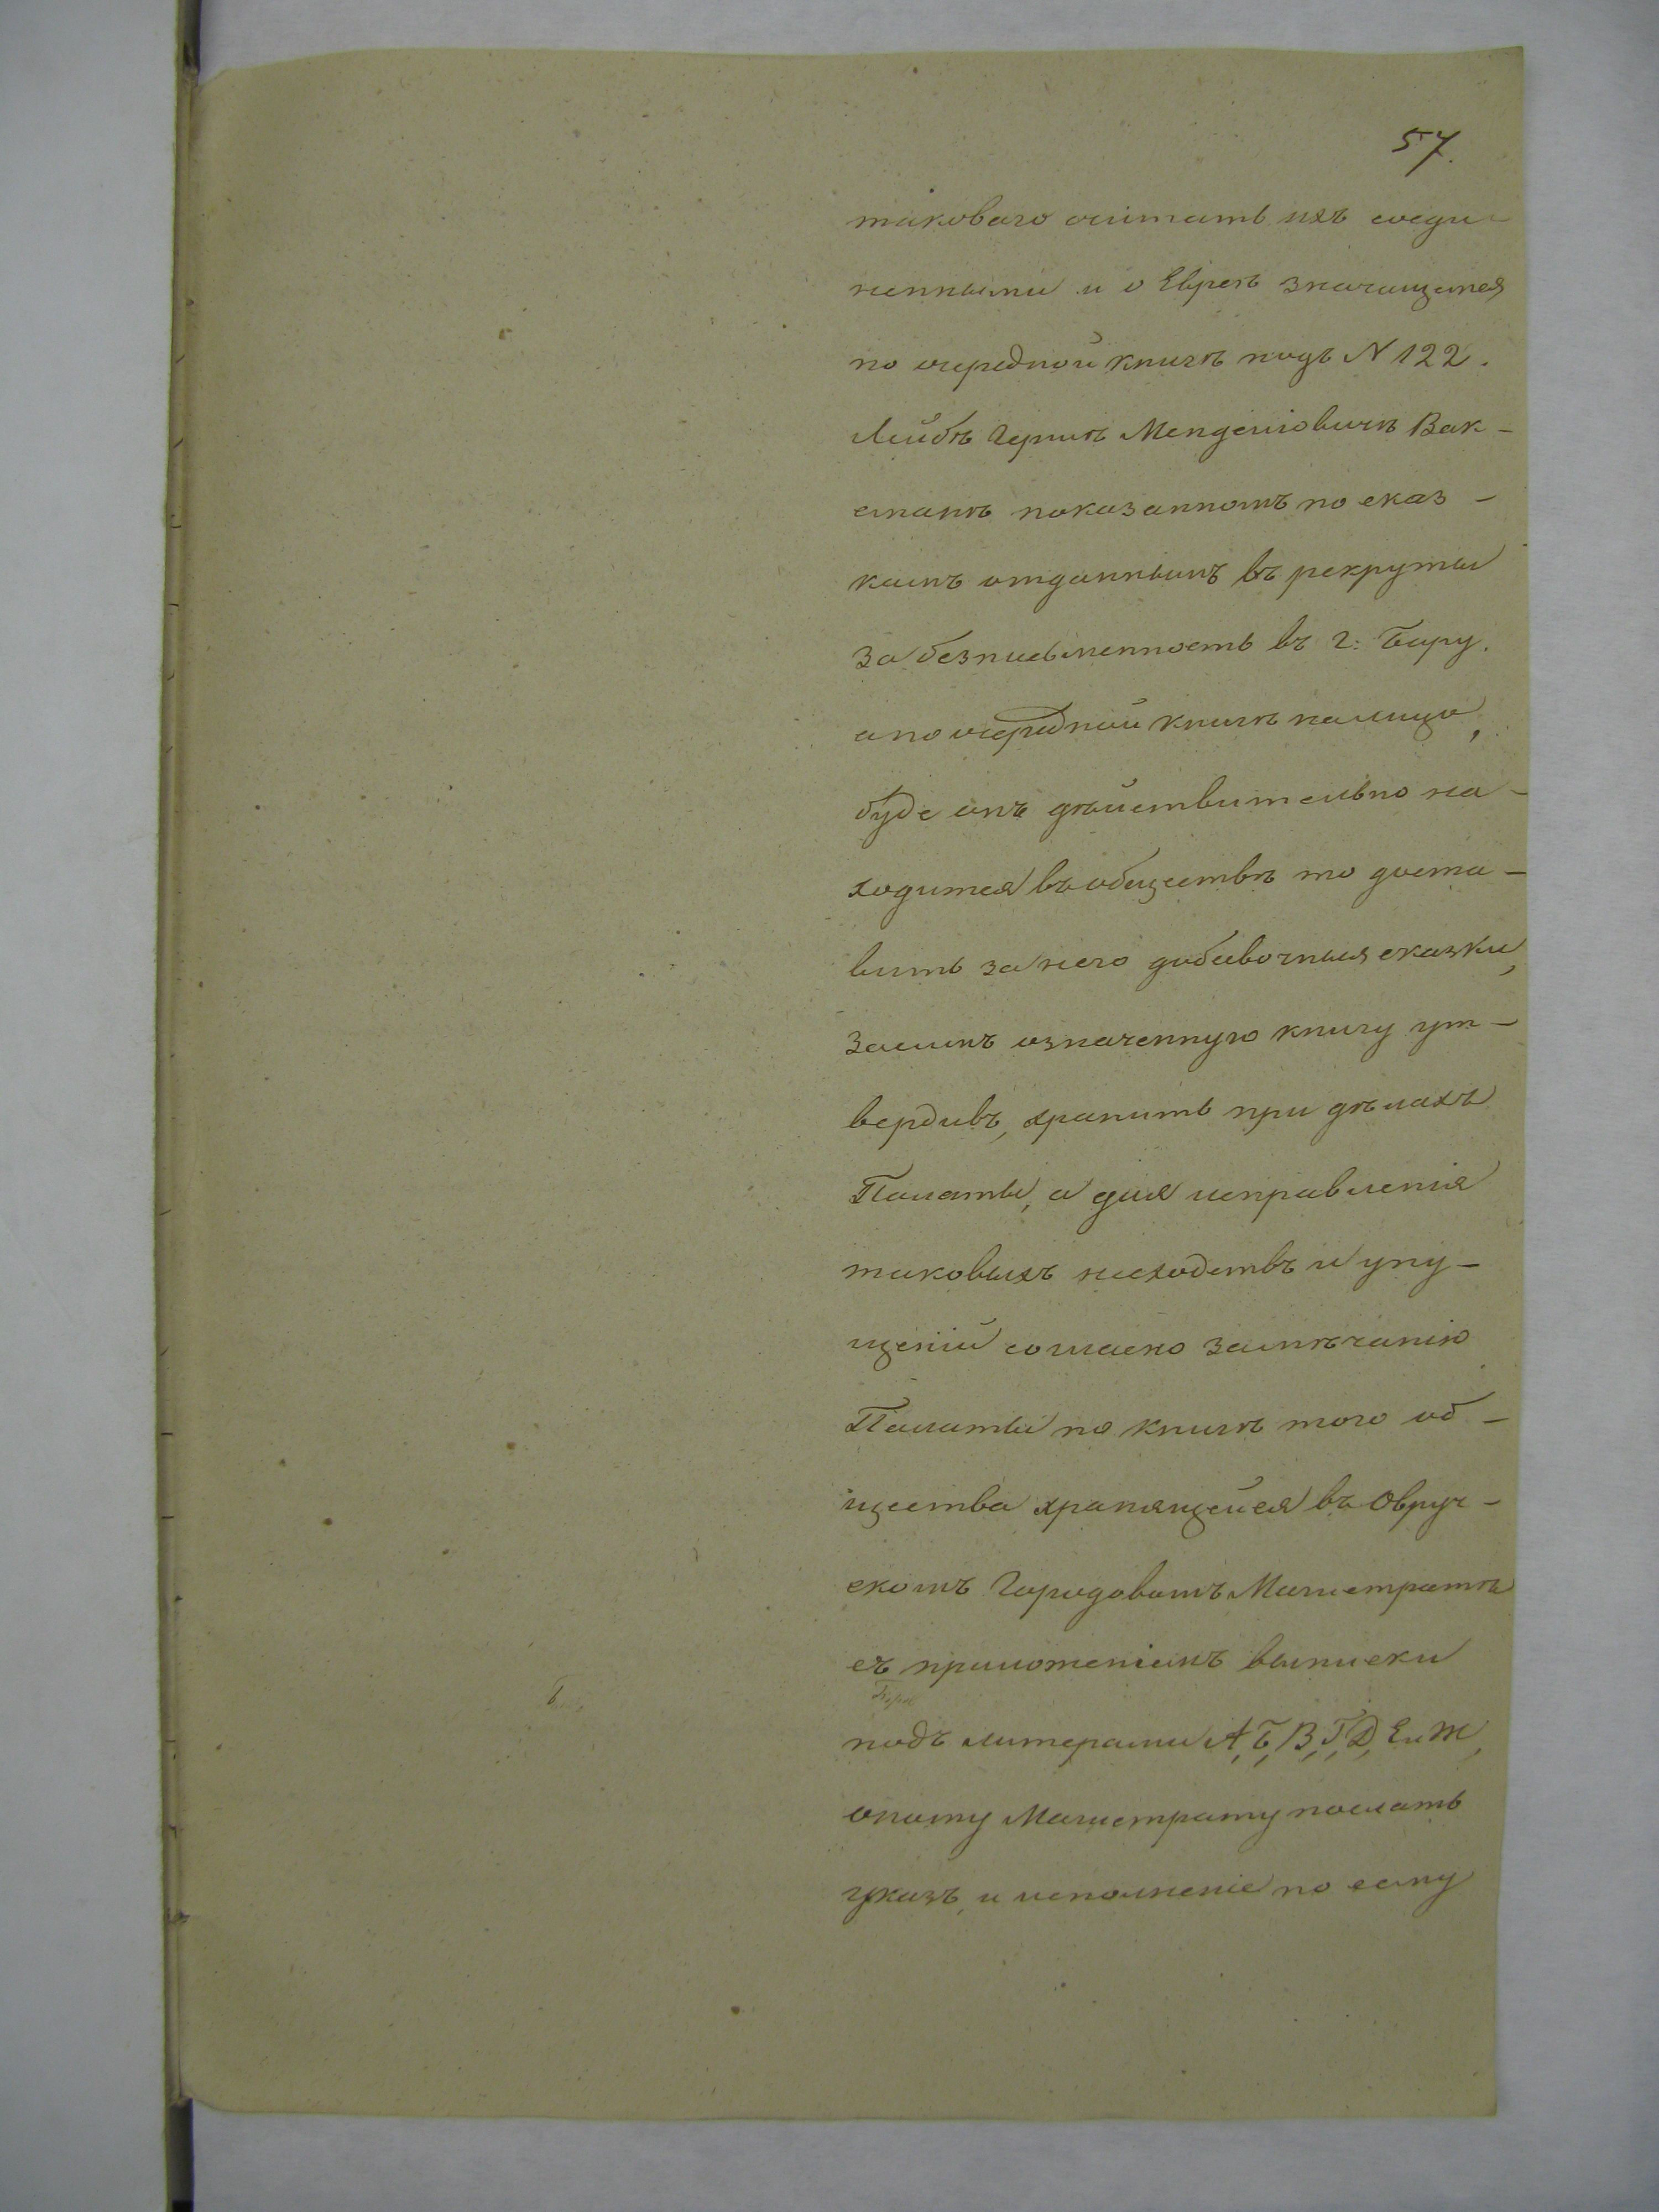 57.
таковаго считать ихъ соеди-
ненными и о Евреѣ значащемся
по очередной книгѣ подъ N 122.
Лейбѣ Гершкѣ Менделіовичѣ Вак-
сманѣ показанномъ по сказ-
камъ отданнымъ въ рекруты
за безписьменность въ г: Бару.
а по очередной книгѣ на лицо,
буде онъ дѣйствительно на-
ходится въ обществѣ то доста-
вить за него добавочныя сказки,
засимъ означенную книгу ут-
вердивъ, хранить при дѣлахъ
Палаты, а для исправленія
таковыхъ несходствъ и упу-
щеній согласно замѣчанію
Палаты по книгѣ того об-
щества хранящейся въ Овруч-
скомъ Городовомъ Магистратѣ
съ приложеніемъ выписки
подъ литерами А, Б, В, Г, Д, Е и Ж,
оному Магистрату послать
указъ, и исполненіе по сему